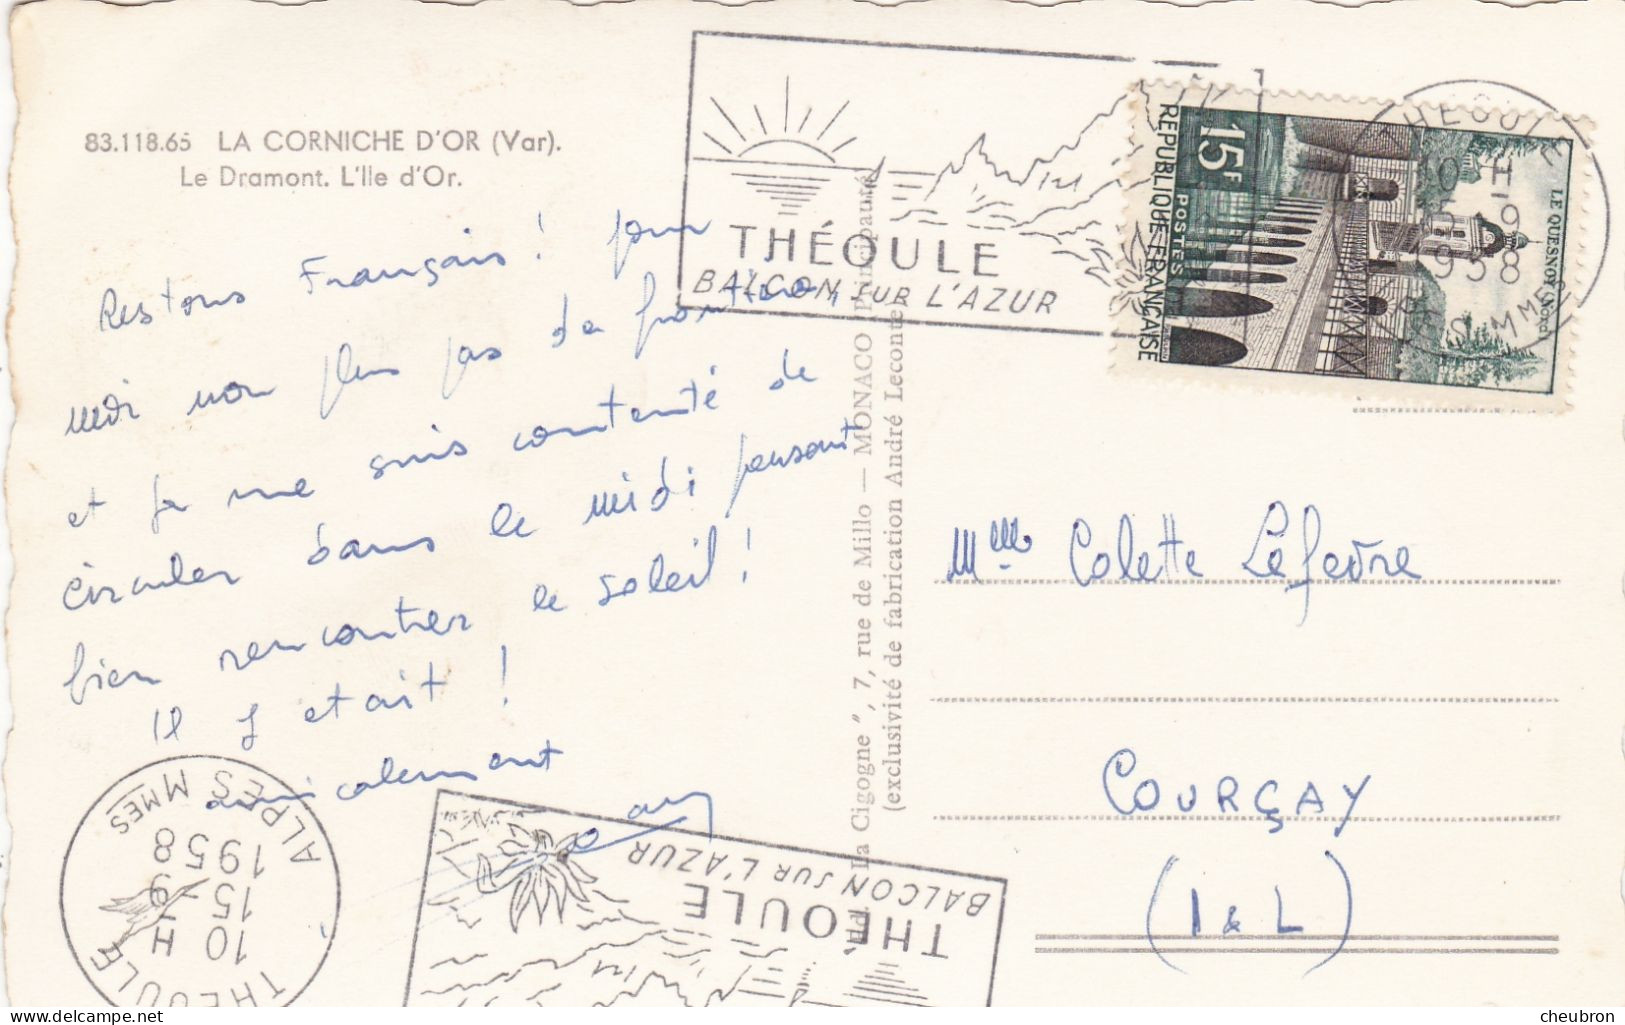 83.118.65 LA CORNICHE D'OR (Var).
Le Dramont. L'Ile d'Or.
Restons Français! pour
moi non plus pas de frontière,
et je me suis contenté de
circuler dans le midi pensant
bien rencontrer le soleil!
Il y etait!
amicalement
THÉOULE
BALCON SUR L'AZUR
RÉPUBLIQUE FRANÇAISE
15F
POSTES
LE QUESNOY (Nord)
THEOULE
10 H
15-9
1958
ALPES MMES
Ed. "La Cigogne", 7, rue de Millo — MONACO (Principauté)
(exclusivité de fabrication André Leconte)
Mme Colette Lefevre
COURÇAY
(I & L)
THEOULE
10 H
15-9
1958
ALPES MMES
THÉOULE
BALCON SUR L'AZUR
delcampe.net
cheubron